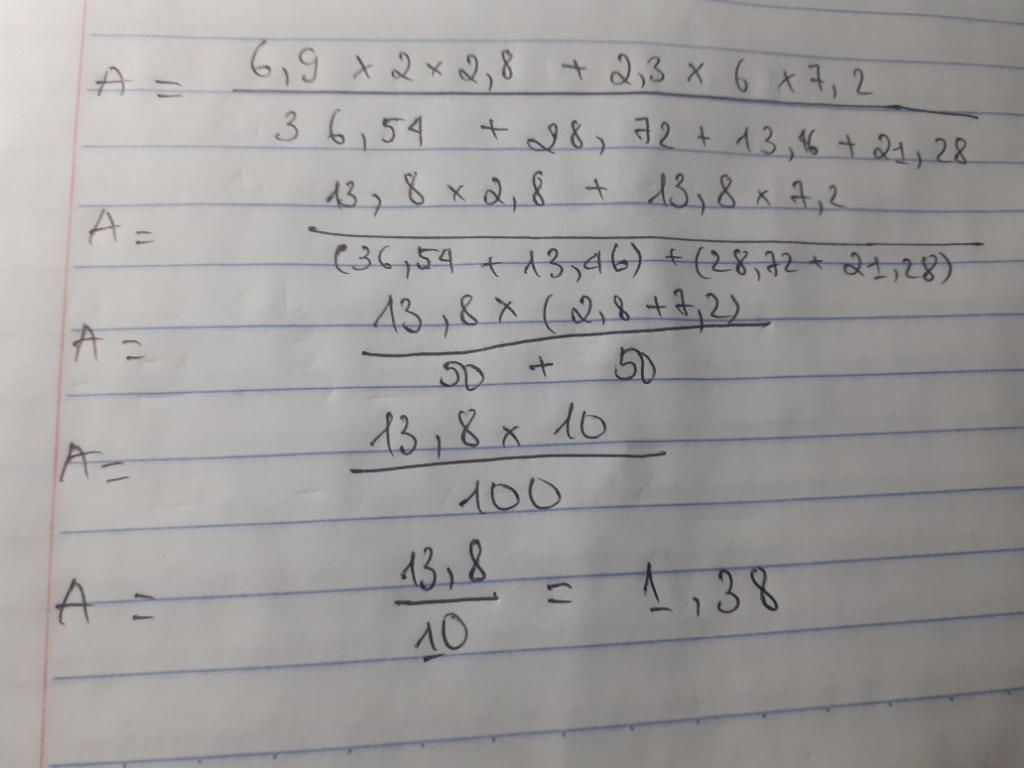 A = 6,9 × 2 × 2,8 + 2,3 × 6 × 7,2
36,54 + 28,72 + 13,46 + 21,28
A = 13,8 × 2,8 + 13,8 × 7,2
(36,54 + 13,46) + (28,72 + 21,28)
A = 13,8 × (2,8 + 7,2)
50 + 50
A = 13,8 × 10
100
A = 13,8
10 = 1,38